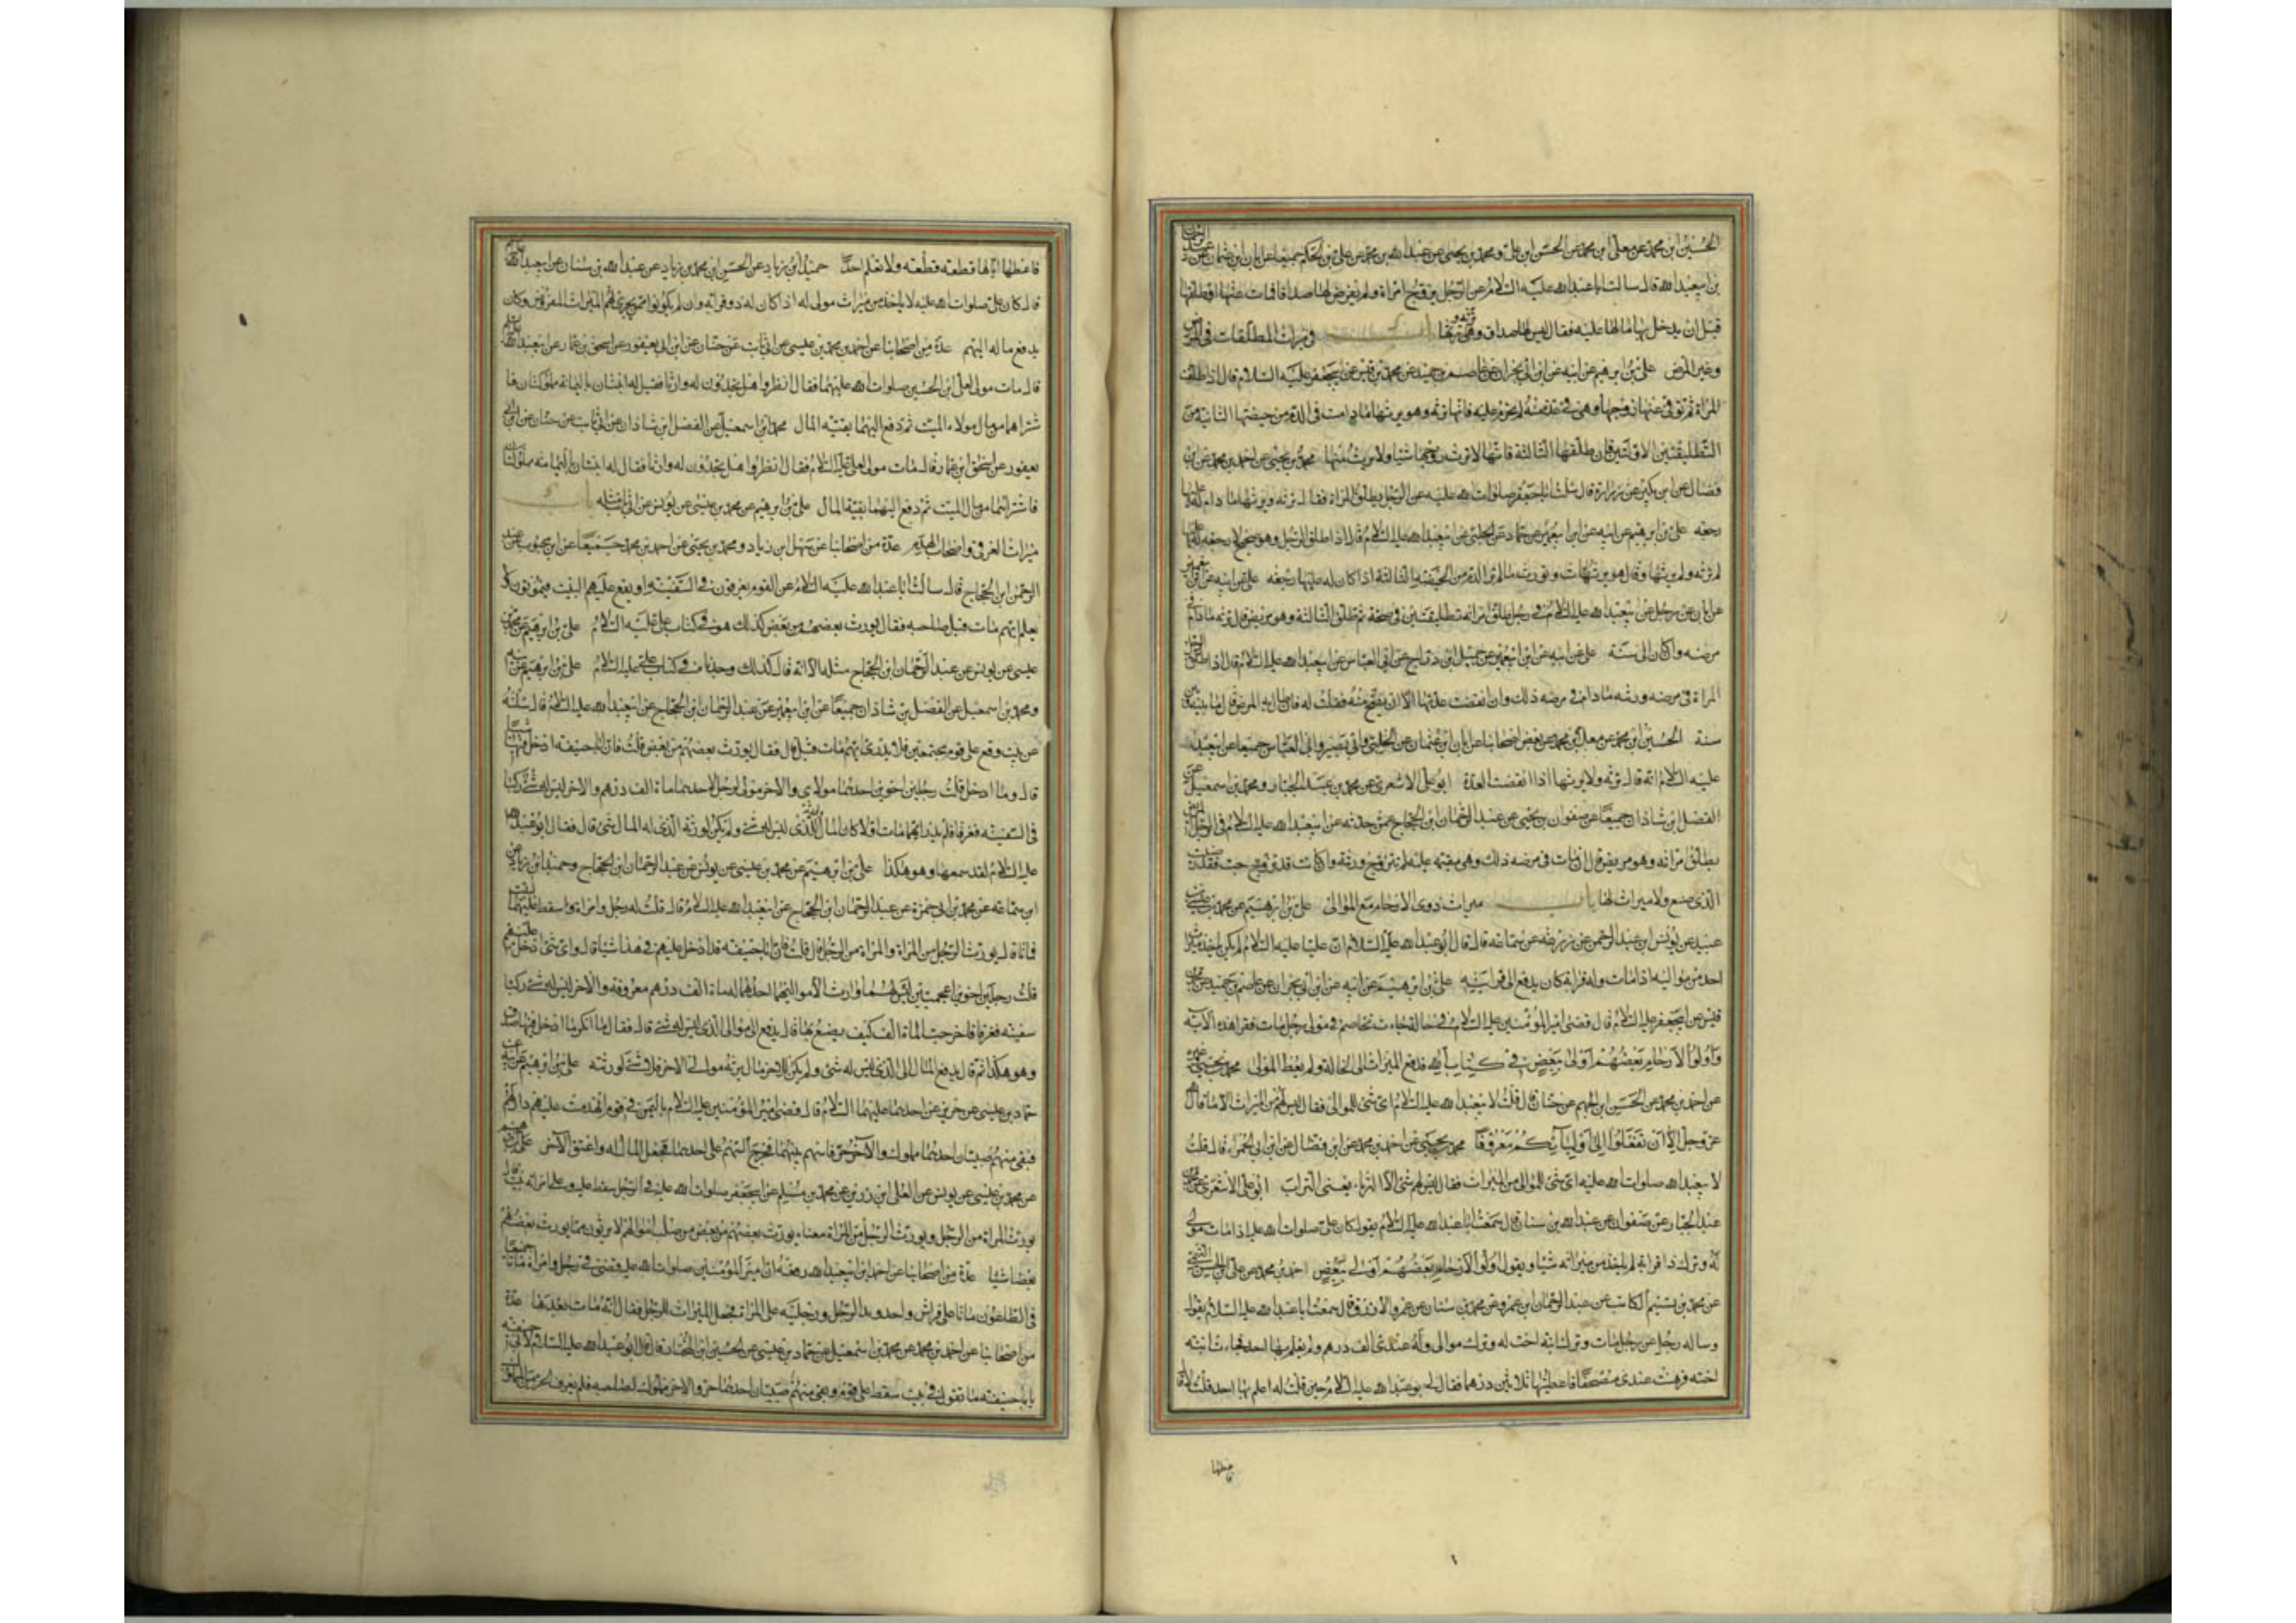 الحسين ابن محمد عن معلى ابن محمد عن الحسن ابن علي ومحمد بن يحيى عن عبدالله بن محمد عن علي بن الحكم جميعا عن ابان ابن عثمان عن عبد الرحمن
بن ابيعبدالله قال سالت اباعبدالله عليه السلام عن الرجل يتزوج امراة ولم يفرض لها صداقا فمات عنها او طلقها
قبل ان يدخل بها ما لها عليه فقال ليس لها صداق وهي ترثه ويرثها باب في ميراث المطلقات في المرض
وغير المرض علي بن ابرهيم عن ابيه عن ابن ابي نجران عن عاصم بن حميد عن محمد بن قيس عن ابيجعفر عليه السلام قال اذا طلقت
المراة ثم توفي عنها زوجها وهي في عدة منه لم تحرم عليه فانها ترثه وهو يرثها ما دامت في الدم من حيضتها الثانية من
التطليقتين الاولتين فان طلقها الثالثة فانها لا ترث زوجها شيئا ولا يرث منها محمد بن يحيى عن احمد بن محمد عن ابن
فضال عن ابن بكير عن زرارة قال سئلت اباجعفر صلوات الله عليه عن الرجل يطلق المراة فقال ترثه ويرثها ما دام له عليها
رجعه علي بن ابرهيم عن ابيه عن ابن ابيعمير عن حماد عن الحلبي عن ابيعبدالله عليه السلام قال اذا طلق الرجل وهو صحيح لا رجعه له عليها
لم ترثه ولم يرثها وقال هو يرث وتورث ما لم تر الدم من الحيضة الثالثة اذا كان له عليها رجعه علي عن ابيه عن ابن ابيعمير
عن ابان عن رجل عن ابيعبدالله عليه السلام في رجل طلق امراته تطليقتين في صحة ثم طلق الثالثة وهو مريض قال ترثه ما دام في
مرضه وان كان الى سنة علي عن ابيه عن ابن ابيعمير عن جميل ابن دراج عن ابي العباس عن ابيعبدالله عليه السلام قال اذا طلق الرجل
المراة في مرضه ورثته ما دام في مرضه ذلك وان انقضت عدتها الا ان يصح منه فقلت له فان طال به المرض قال ما بينه وبين
سنة الحسين ابن محمد عن معلى بن محمد عن بعض اصحابنا عن ابان ابن عثمان عن الحلبي وابي بصير وابي العباس جميعا عن ابيعبدالله
عليه السلام انه قال ترثه ولا يرثها اذا انقضت العدة ابوعلي الاشعري عن محمد بن عبد الجبار ومحمد بن اسمعيل عن
الفضل ابن شاذان جميعا عن صفوان بن يحيى عن عبد الرحمان ابن الحجاج عمن حدثه عن ابيعبدالله عليه السلام في الرجل المريض
يطلق امراته وهو مريض قال ان مات في مرضه ذلك وهي مقيمه عليه لم تتزوج ورثته وان كانت قد تزوجت فقد رضيت
الذي صنع ولا ميراث لها باب ميراث ذوى الارحام مع الموالي علي بن ابرهيم عن محمد بن عيسى
عبيد عن يونس ابن عبد الرحمن عن زرعه عن سماعه قال قال ابوعبدالله عليه السلام ان عليا عليه السلام لم يكن ياخذ ميراث
احد من مواليه اذا مات وله قرابة كان يدفع الى قرابته علي بن ابرهيم عن ابيه عن ابن ابي نجران عن عاصم بن حميد عن محمد بن
قيس عن ابيجعفر عليه السلام قال قضى امير المؤمنين عليه السلام في خالة جاءت تخاصم في مولى رجل مات فقرا هذه الآية
وَاُولُوا الاَرْحامِ بَعْضُهُمْ اَوْلى بِبَعْضٍ في كِتابِ اللهِ فدفع الميراث الى الخالة ولم يعط المولى محمد بن يحيى
عن احمد بن محمد عن الحسن ابن الجهم عن حنان قال قلت لابيعبدالله عليه السلام اى شئ للموالي فقال ليس لهم من الميراث الا ما قال الله
عز وجل اِلاّ اَنْ تَفْعَلُوا اِلى اَوْلِيآئِكُمْ مَعْرُوفًا محمد بن يحيى عن احمد بن محمد عن ابن فضال عن ابن ابي الحمراء قال قلت
لابيعبدالله صلوات الله عليه اى شئ للموالي من الميراث فقال ليس لهم شئ الا الترباء يعنى التراب ابوعلي الاشعرى عن محمد بن
عبد الجبار عن صفوان عن عبدالله بن سنان قال سمعت اباعبدالله عليه السلام يقول كان علي صلوات الله عليه اذا مات مولى
له وترك ذا قرابة لم ياخذ من ميراثه شيئا ويقول اُولُوا الاَرْحامِ بَعْضُهُمْ اَوْلى بِبَعْضٍ احمد بن محمد عن علي بن الحسن التيمي
عن محمد بن تسنيم الكاتب عن عبد الرحمان ابن عمرو عن محمد بن سنان عن عمرو الازرق قال سمعت اباعبدالله عليه السلام يقول
وساله رجل عن رجل مات وترك ابنة اخت له وترك موالى وله عندى الف درهم ولم يعلم بها احد فجاءت ابنة
اخته فرهنت عندى مصحفا فاعطيتها ثلاثين درهما فقال لي ابوعبدالله عليه السلام حين قلت له اعلم بها احد قلت لا قال
فاعطها
فاعطها اياها قطعه قطعه ولا تعلم احدا حميد ابن زياد عن الحسن ابن محمد بن زياد عن عبدالله بن سنان عن ابيعبدالله عليه السلام
قال كان علي صلوات الله عليه لا ياخذ من ميراث مولى له اذا كان له ذو قرابه وان لم يكونوا ممن يجرى لهم الميراث المفروض وكان
يدفع ماله اليهم عدة من اصحابنا عن احمد بن محمد بن عيسى عن ابي ثابت عن حنان عن ابن ابي يعفور عن اسحق بن عمار عن ابيعبدالله عليه السلام
قال مات مولى لعلي ابن الحسين صلوات الله عليهما فقال انظروا هل تجدون له وارثا فقيل له ابنتان باليمامة مملوكتان فا
شتراهما من مال مولاه الميت ثم دفع اليهما بقية المال محمد ابن اسمعيل عن الفضل ابن شاذان عن ابي ثابت عن حنان عن ابن ابي
يعفور عن اسحق ابن عمار قال مات مولى لعلي عليه السلام فقال انظروا هل تجدون له وارثا فقال له ابنتان باليمامه مملوكتان
فاشتراهما من مال الميت ثم دفع اليهما بقية المال علي بن ابرهيم عن محمد بن عيسى عن يونس عن ابي ثابت مثله باب
ميراث الغرقى واصحاب الهدم عدة من اصحابنا عن سهل ابن زياد ومحمد بن يحيى عن احمد بن محمد جميعا عن ابن محبوب عن عبد
الرحمن ابن الحجاج قال سالت اباعبدالله عليه السلام عن القوم يغرقون في السفينة او يقع عليهم البيت فيموتون فلا
يعلم ايهم مات قبل صاحبه فقال يورث بعضهم من بعض كذلك هو في كتاب علي عليه السلام علي بن ابرهيم عن محمد بن
عيسى عن يونس عن عبد الرحمان ابن الحجاج مثله الا انه قال كذلك وجدناه في كتاب علي عليه السلام علي بن ابرهيم عن ابيه
ومحمد بن اسمعيل عن الفضل بن شاذان جميعا عن ابن ابيعمير عن عبد الرحمان ابن الحجاج عن ابيعبدالله عليه السلام قال سئلته
عن بيت وقع على قوم مجتمعين فلا يدرى ايهم مات قبل قال فقال يورث بعضهم من بعض قلت فان اباحنيفه ادخل فيها شيئا
قال وما ادخل قلت رجلين اخوين احدهما مولاي والاخر مولى لرجل لاحدهما مائة الف درهم والاخر ليس له شئ ركبا
في السفينه فغرقا فلم يدر ايهما مات اولا كان المال لورثة الذى ليس له شئ ولم يكن لورثة الذى له المال شئ قال فقال ابوعبدالله
عليه السلام لقد سمعها وهو هكذا علي بن ابرهيم عن محمد بن عيسى عن يونس عن عبد الرحمان ابن الحجاج وحميد ابن زياد عن
ابن سماعه عن محمد بن ابي حمزة عن عبد الرحمان ابن الحجاج عن ابيعبدالله عليه السلام قال قلت له رجل وامراة سقط عليهما البيت
فماتا قال يورث الرجل من المراة والمراة من الرجل قال قلت فان اباحنيفه قد ادخل عليهم في هذا شيئا قال واى شئ ادخل عليهم
قلت رجلين اخوين اعجميين ليس لهما وارث الا مواليهما احدهما له مائة الف درهم معروفه والاخر ليس له شئ ركبا
سفينه فغرقا فاخرجت المائة الف كيف يصنع بها قال يدفع الى موالى الذى ليس له شئ قال فقال ما انكر ما ادخل فيها صدق
وهو هكذا ثم قال يدفع المال الى الذى ليس له شئ ولم يكن للاخر مال يرثه موالي الاخر فلا شئ لورثته علي بن ابرهيم عن ابيه عن
حماد بن عيسى عن حريز عن احدهما عليهما السلام قال قضى امير المؤمنين عليه السلام باليمن في قوم انهدمت عليهم دار لهم
فبقى منهم صبيان احدهما مملوك والآخر حر فاسهم بينهما فخرج السهم على احدهما فجعل المال له واعتق الآخر علي بن ابرهيم
عن محمد بن عيسى عن يونس عن العلى ابن رزين عن محمد بن مسلم عن ابيجعفر صلوات الله عليه في الرجل سقط عليه وعلى امراته بيت قال
تورث المراة من الرجل ويورث الرجل من المراة معناه يورث بعضهم من بعض من صلب اموالهم لا يرثون مما يورث بعضهم
بعضا شيئا عدة من اصحابنا عن احمد ابن ابيعبدالله رفعه ان امير المؤمنين صلوات الله عليه قضى في رجل وامراة ماتا جميعا
في الطاعون ماتا على فراش واحد ويد الرجل ورجليه على المراة فجعل الميراث للرجل فقال انه مات بعدها عدة
من اصحابنا عن احمد بن محمد عن محمد بن اسمعيل عن حماد بن عيسى عن الحسين ابن المختار قال قال ابوعبدالله عليه السلام لابي حنيفه
يا باحنيفه ما تقول في بيت سقط على قوم وبقى منهم صبيان احدهما حر والاخر مملوك لصاحبه فلم يعرف الحر من المملوك